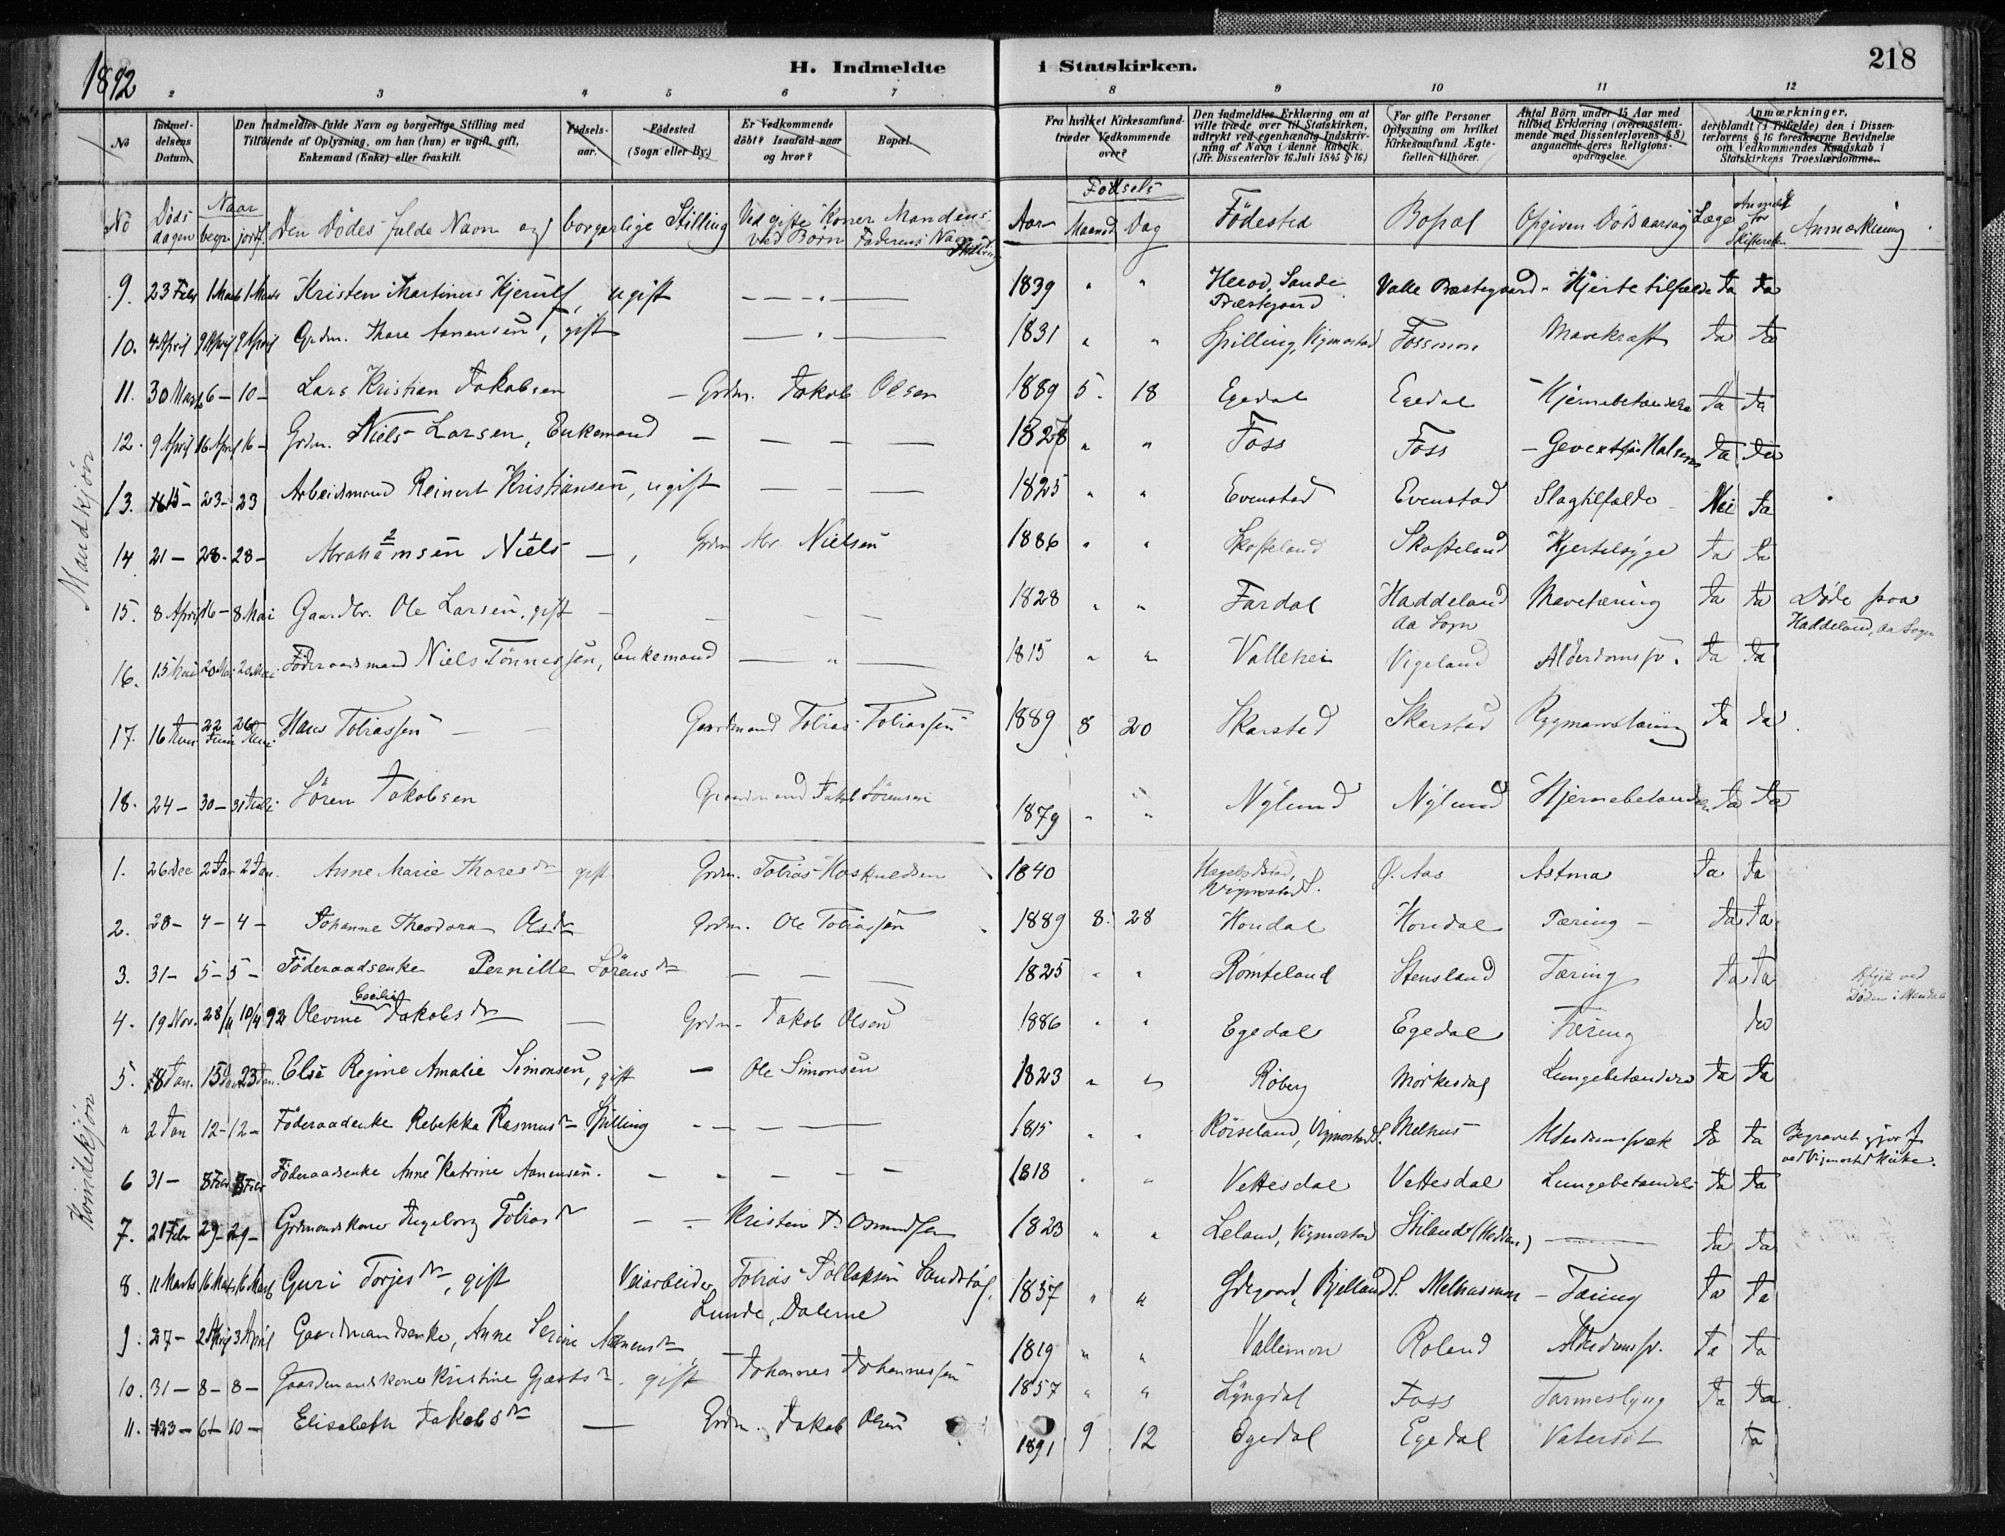 1892
H. Indmeldte i Statskirken.
218
2 3 4 5 6 7 8 9 10 11 12
No
Indmel-
delsens
Datum.
Den Indmeldtes fulde Navn og borgerlige Stilling med
Tilføiende af Oplysning, om han (hun) er ugift, gift,
Enkemand (Enke) eller fraskilt.
Fødsels-
aar.
Fødested
(Sogn eller By.)
Er Vedkommende
døbt? Isaafald naar
og hvor?
Bopæl.
Fra hvilket Kirkesamfund
træder Vedkommende
over?
Den Indmeldtes Erklæring om at
ville træde over til Statskirken,
udtrykt ved egenhændig Indskriv-
ning af Navn i denne Rubrik.
(Jfr. Dissenterlov 16 Juli 1845 § 16)
For gifte Personer
Oplysning om hvilket
Kirkesamfund Ægte-
fællen tilhører.
Antal Børn under 15 Aar med
tilføiet Erklæring (overensstem-
mende med Dissenterlovens § 8)
angaaende deres Religions-
opdragelse.
Anmærkninger,
deriblandt (i Tilfælde) den i Dissen-
terlovens § 15 foreskrevne Bevidnelse
om Vedkommendes Kundskab i
Statskirkens Troeslærdomme.
No
Døds
dagen
Naar
begr. jordf.
Den Dødes fulde Navn og borgerlige Stilling
Ved gifte Koner Mandens
ved Børn Faderens Navn
Fødsels
Aar Maaned Dag
Fødested
Bopæl
Opgiven Dødsaarsag
Læge
Anmeldt
for
Skifteretten
Anmærkning
Mandkjøn
9. 23 Febr 1 Marts 1 Marts Kristen Martinius Kjerulf, ugift 1839 " " Herod, Sande Præstegaard Valle Præstegaard Hjertetilfælde Ja Ja
10. 4 April 9 April 9 April Grdm. Thore Aanensen, gift 1831 " " Spilling, Vigmostad Fossmon Mavekræft Ja Ja
11. 30 Marts 6 – 10 – Lars Kristian Jakobsen – Grdm. Jakob Olsen 1889 5. 18 Egedal Egedal Hjernebetændelse Ja Ja
12. 9 April 16 April 16 – Grdm. Niels Larsen, Enkemand 1828 " " Foss Foss – Ja Ja
13. 15 – 23 – 23 Arbeidsmand Reinert Kristiansen, ugift 1825 " " Evenstad Evenstad Slagtilfælde Nei Ja
14 21 – 28 – 28 – Abrahamsen Niels – Grdm Abr. Nielsen 1886 " " Skofteland Skofteland Hjertesyge Ja Ja
15. 8 April 16 – 8 Mai Gaardbr. Ole Larsen, gift – 1828 " " Fardal Haddeland Aa Sogn Mavetæring Ja Ja Døde paa Haddeland, Aa Sogn
16. 15 Mai 20 Mai 20 Mai Føderaadsmand Niels Tønnessen, Enkemand 1815 " " Vallehei Vigeland Alderdomssv. Ja Ja
17. 16 Juni 22 Juni 26 Juni Hans Tobiassen Gaardmand Tobias Tobiassen 1889 8 20 Skarstad Skarstad Rygmarvstæring Ja Ja
18. 24 – 30 – 31 Juli Søren Jakobsen Gaardmand Jakob Sørensen 1879 " " Nylund Nylund Hjernebetændelse Ja Ja
Kvindekjøn
1. 26 Dec 2 Jan 2 Jan. Anne Marie Tharesdtr gift Grdm. Tobias Hoskuldsen 1840 Hægebostad, Vigmostad S. Ø. Aas Astma Ja Ja
2. 28 – 4 – 4 – Johanne Theodora Olsdtr Grdm. Ole Tobiassen 1889 8. 28 Hondal Hondal Tæring – Ja Ja
3. 31 – 5 – 5 – Føderaadsenke Pernille Sørensdtr 1825 " " Rømteland Stensland Tæring Ja Ja
4. 19 Nov. 28/11 10/4 92 Olevine Cecilie Jakobsdtr – Grdm. Jakob Olsen 1886 " " Egedal Egedal Tæring Ja døden i Mandal
5. 8 Jan. 15 Jan 23 Jan. Else Regine Amalie Simonsen, gift – Ole Simonsen 1823 " " Røberg Mørkesdal Lungebetændelse Ja Ja
" 2 Jan 12 – 12 – Føderaadenke Rebekka Rasmusdtr Spilling 1815 " " Rørseland, Vigmostad S. Melhus Alderdomssvæk Ja Ja Begravet
ved Vigmostad Kirke.
6 31 – 8 Febr 8 Febr Føderaadsenke Anne Katrine Aanensen. 1818 " " Vettesdal Vettesdal Lungebetændelse Ja Ja
7. 21 Febr 29 – 29 – Grdmandskone Ingeborg Tobiasdtr Kristen T. Osmundsen 1823 " " Leland, Vigmostad Stiland Ja Ja
8. 11 Marts 16 Marts 16 Marts Guri Torjesdtr, gift Veiarbeider Tobias Tollaksen Sandstøl, Lunde, Dalerne 1837 " " Ødegaard, Bjelland S. Melhusmon – Tæring Ja Ja
9. 27 – 2 April 3 April Gaardmandsenke, Anne Serine Aanensdtr 1819 " " Vallemon Roland Alderdomssv. Ja Ja
10. 31 – 8 – 8 – Gaardmandskone Kristine Gjertsdtr. gift Johannes Johannessen 1857 " " Lyngdal Foss Tarmeslyng Ja Ja
11. 23 – 6 – 10 – Elisabeth Jakobsdtr – Grdm. Jakob Olsen 1891 9 12 Egedal Egedal Vatersot Ja